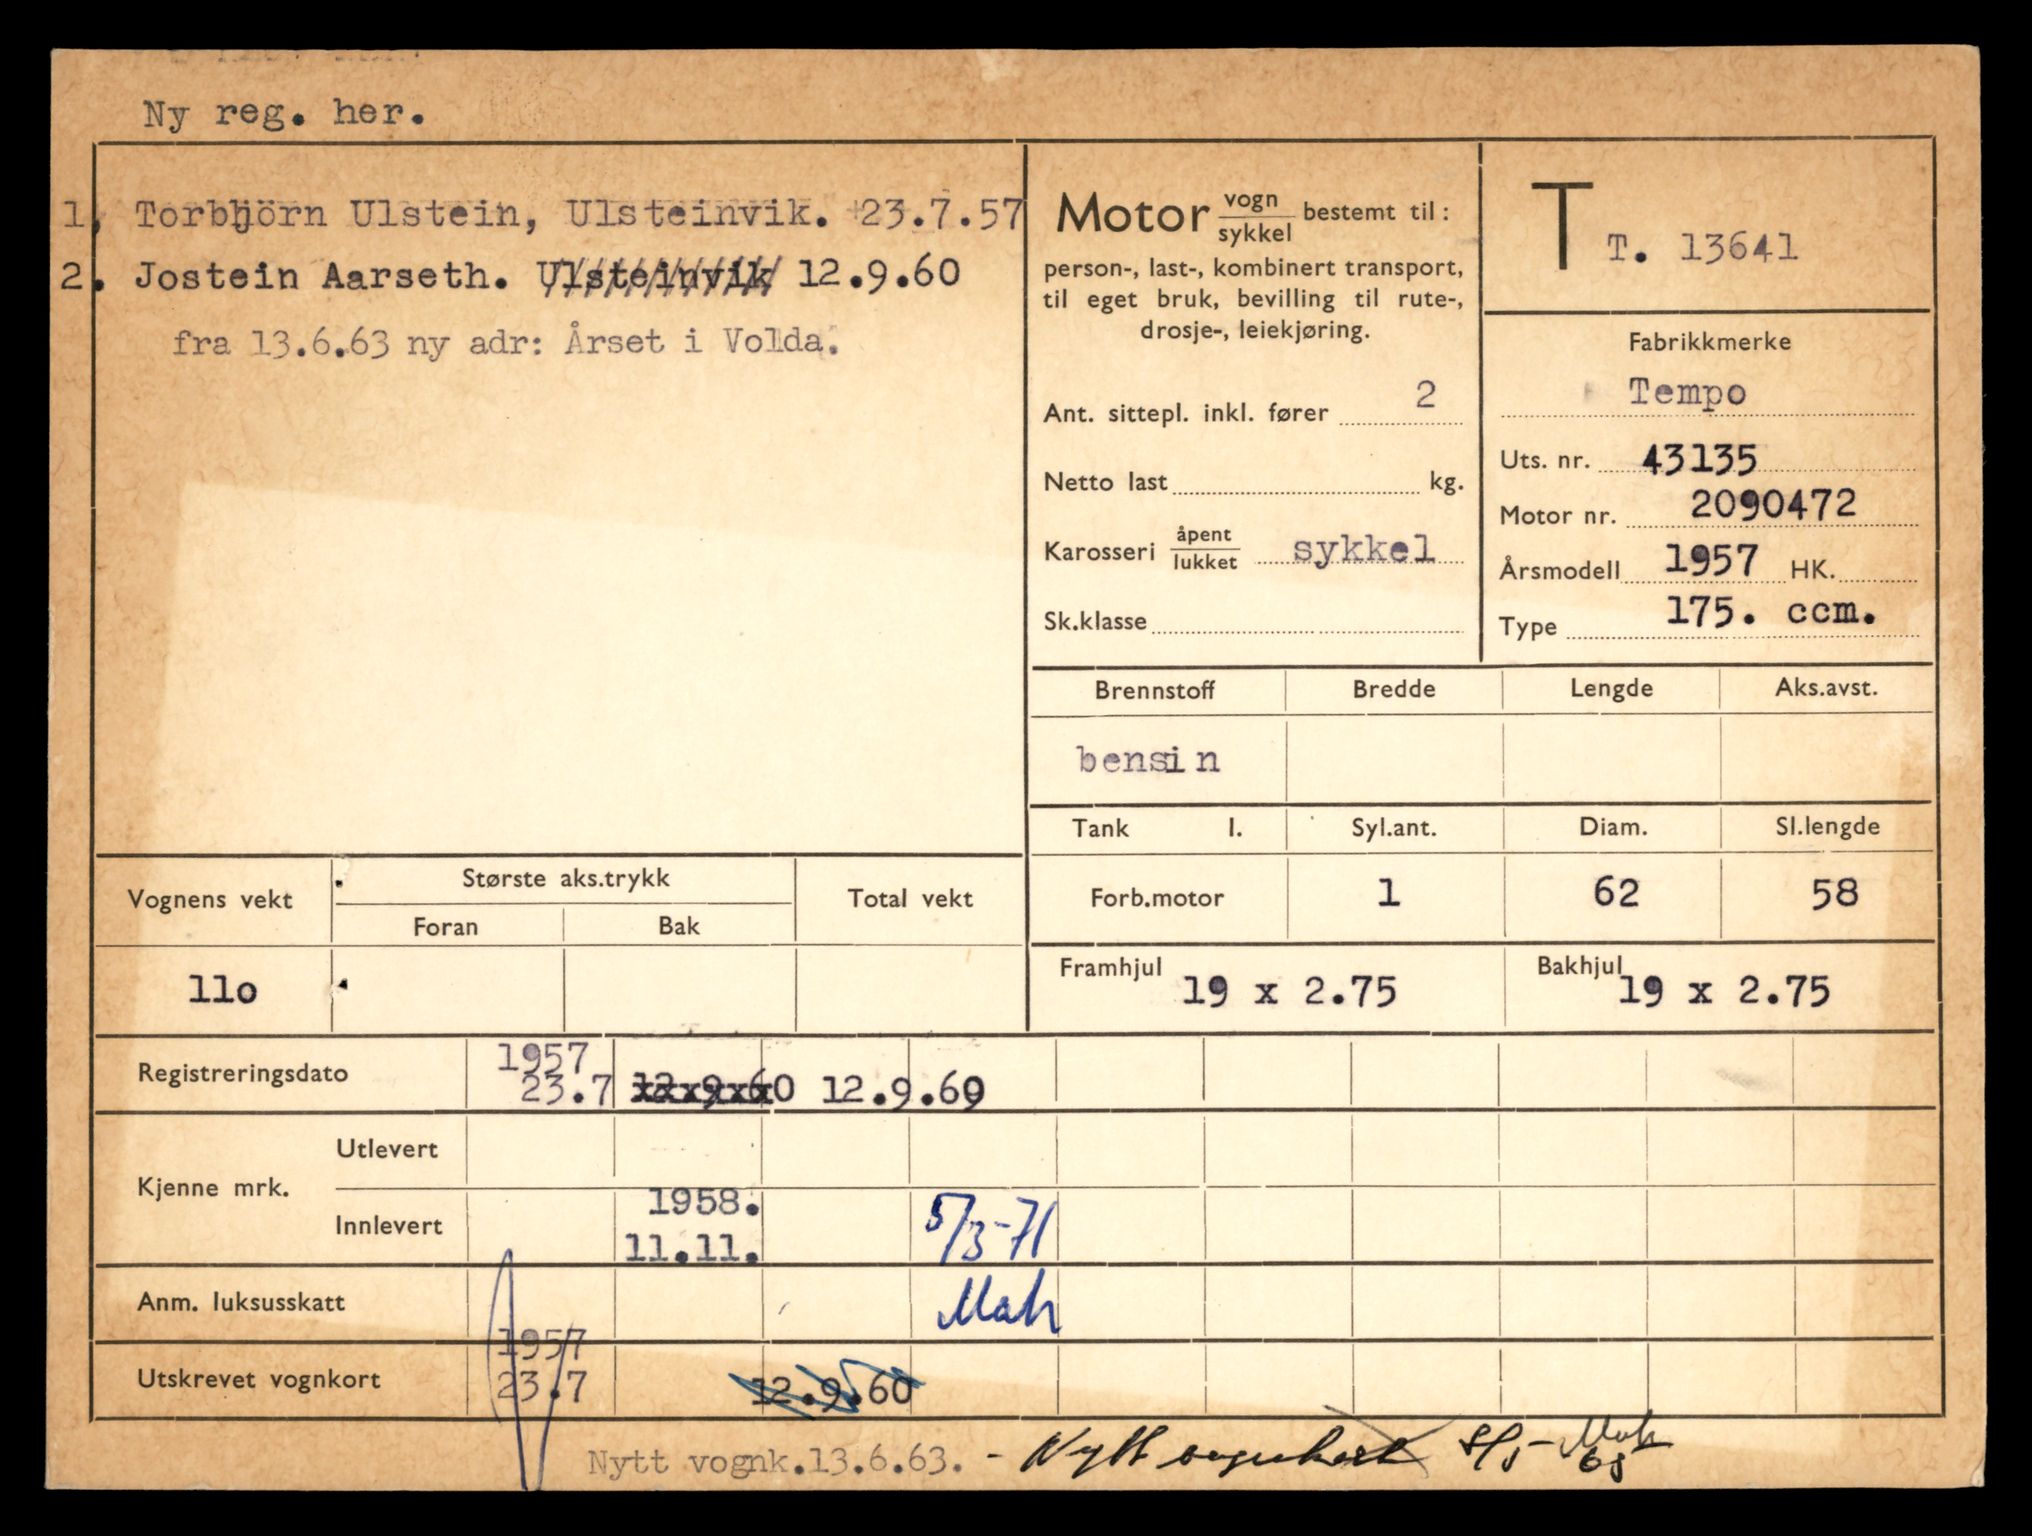 Ny reg. her.
1, Torbjörn Ulstein, Ulsteinvik. 23.7.57
2. Jostein Aarseth. Ulsteinvik 12.9.60
fra 13.6.63 ny adr: Årset i Volda.
Motor vogn/sykkel bestemt til:
person-, last-, kombinert transport,
til eget bruk, bevilling til rute-,
drosje-, leiekjøring.
Ant. sittepl. inkl. fører 2
Netto last kg.
Karosseri åpent/lukket sykkel
Sk.klasse
T T. 13641
Fabrikkmerke
Tempo
Uts. nr. 43135
Motor nr. 2090472
Årsmodell 1957 HK.
Type 175. ccm.
Brennstoff Bredde Lengde Aks.avst.
bensin
Tank l. Syl.ant. Diam. Sl.lengde
Forb.motor 1 62 58
Framhjul 19 x 2.75 Bakhjul 19 x 2.75
Vognens vekt Største aks.trykk Total vekt
Foran Bak
11o
Registreringsdato 1957 23.7 12.9.60 12.9.60
Kjenne mrk. Utlevert
Innlevert 1958. 11.11. 5/3-71
Anm. luksusskatt Mah
Utskrevet vognkort 1957 23.7 12.9.60
Nytt vognk.13.6.63. - Nytt vognkort 8/5-65 Mah